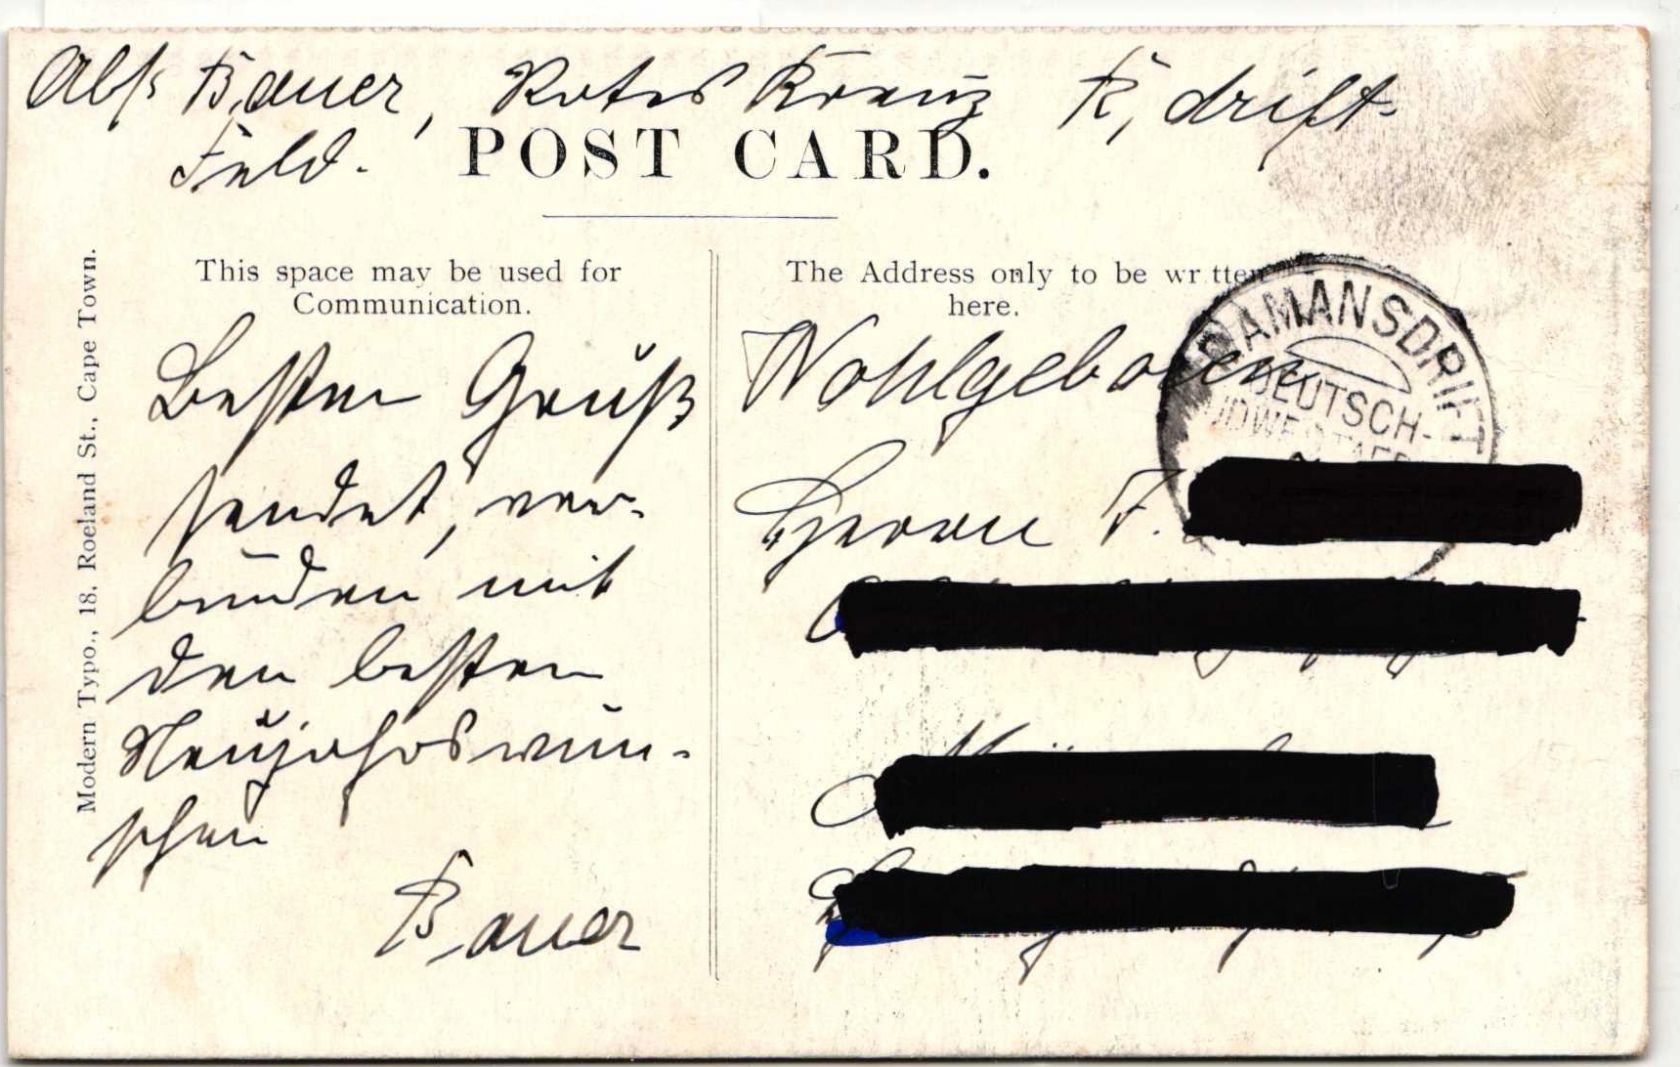 Abs. Bauer, Rotes Kreuz R, drift-
Feld.
POST CARD.
This space may be used for
Communication.
Besten Gruß
sendet, ver-
bunden mit
den besten
Neujahrswün-
schen
Bauer
Modern Typo., 18, Roeland St., Cape Town.
The Address only to be wr tten
here.
Wohlgeboren
Herrn F.
RAMANSDRIFT
DEUTSCH-